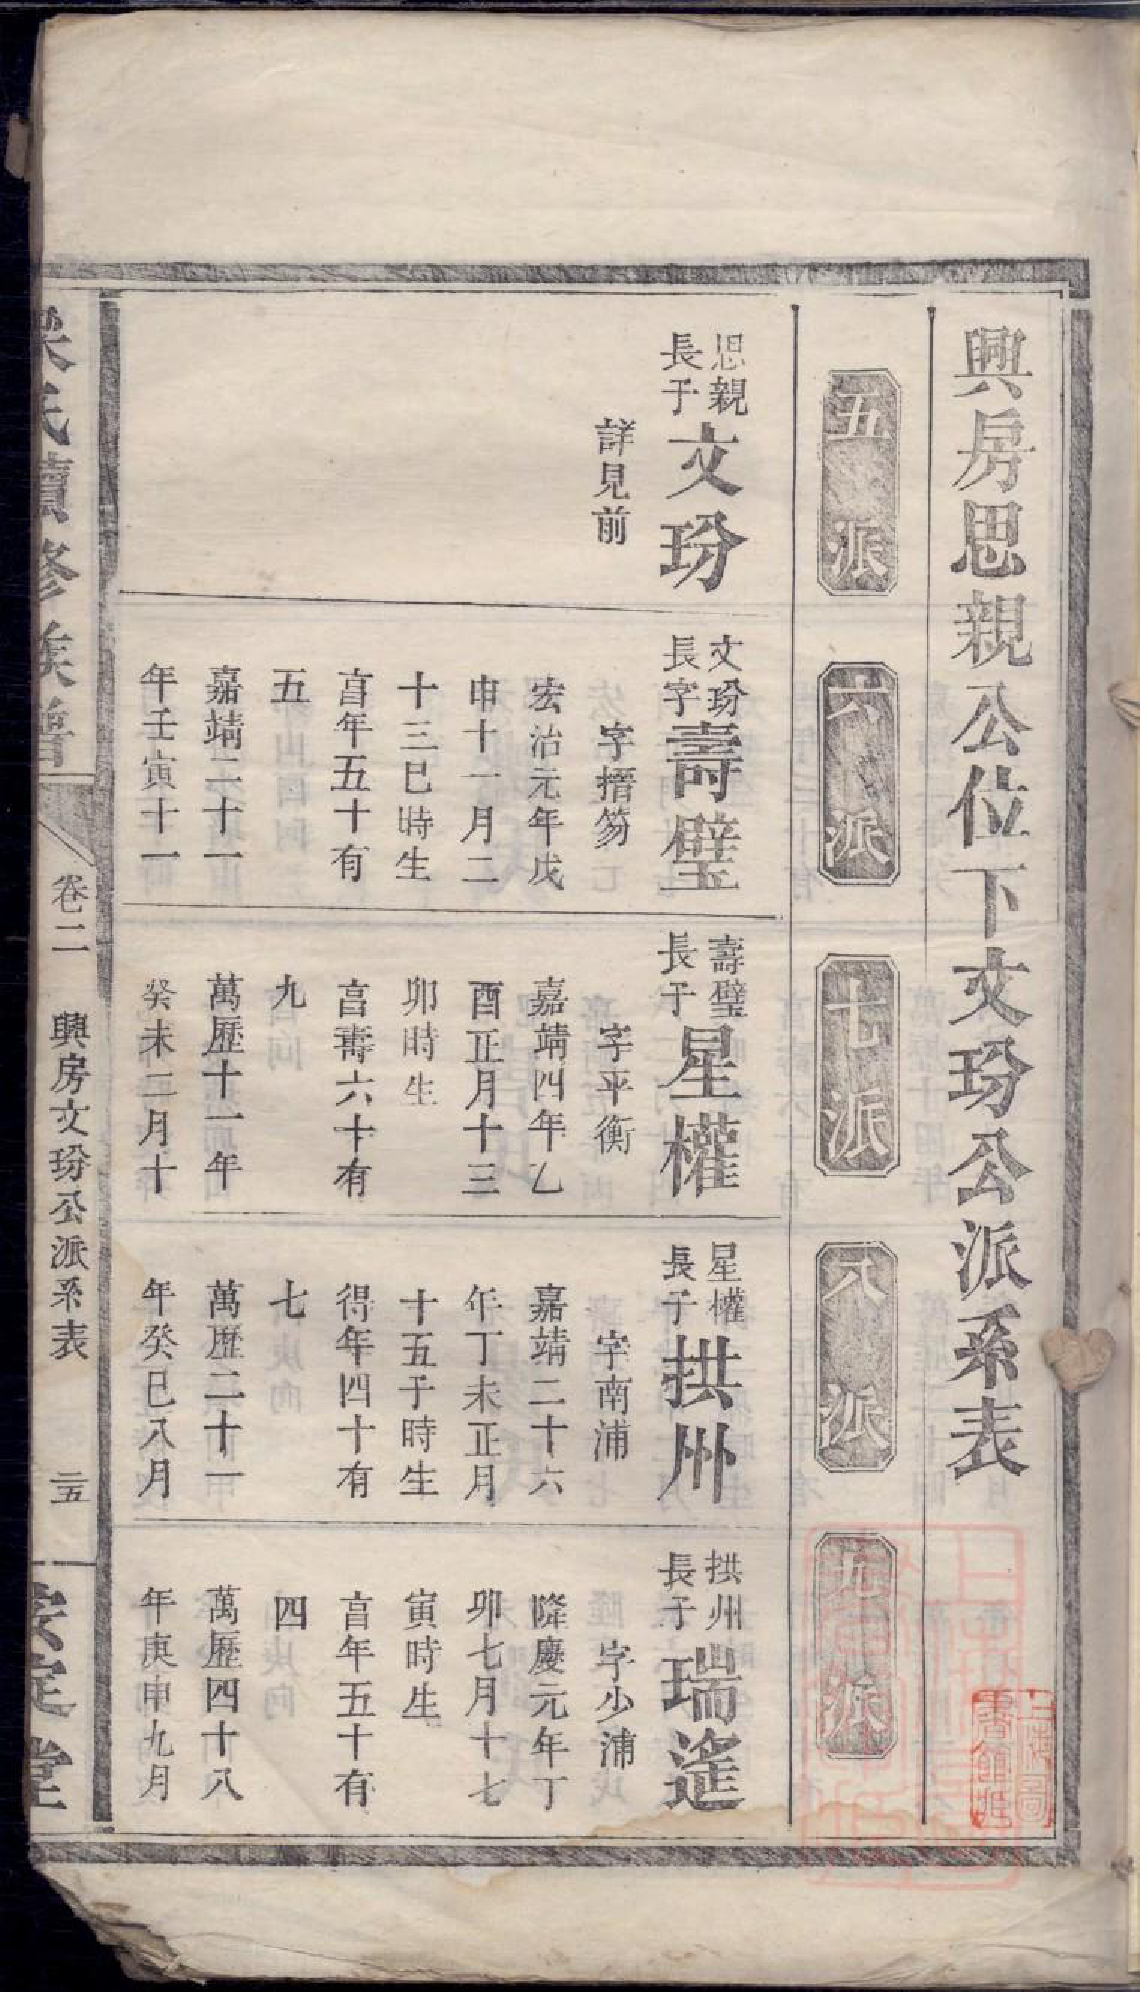 興房思親公位下文玢公派系表
五派
六派
七派
八派
九派
思親
長子
文玢
詳見前
文玢
長字
壽璧
字搢笏
宏治元年戊
申十一月二
十三巳時生
享年五十有
五
嘉靖二十一
年壬寅十一
壽璧
長子
星權
字平衡
嘉靖四年乙
酉正月十三
卯時生
享壽六十有
九
萬歷十一年
癸未二月十
星權
長子
拱州
字南浦
嘉靖二十六
年丁未正月
十五子時生
得年四十有
七
萬歷二十一
年癸巳八月
拱州
長子
瑞遙
字少浦
隆慶元年丁
卯七月十七
寅時生
享年五十有
四
萬歷四十八
年庚申九月
氏續修族譜
卷二
興房文玢公派系表
二五
安定堂
上海圖
書館藏